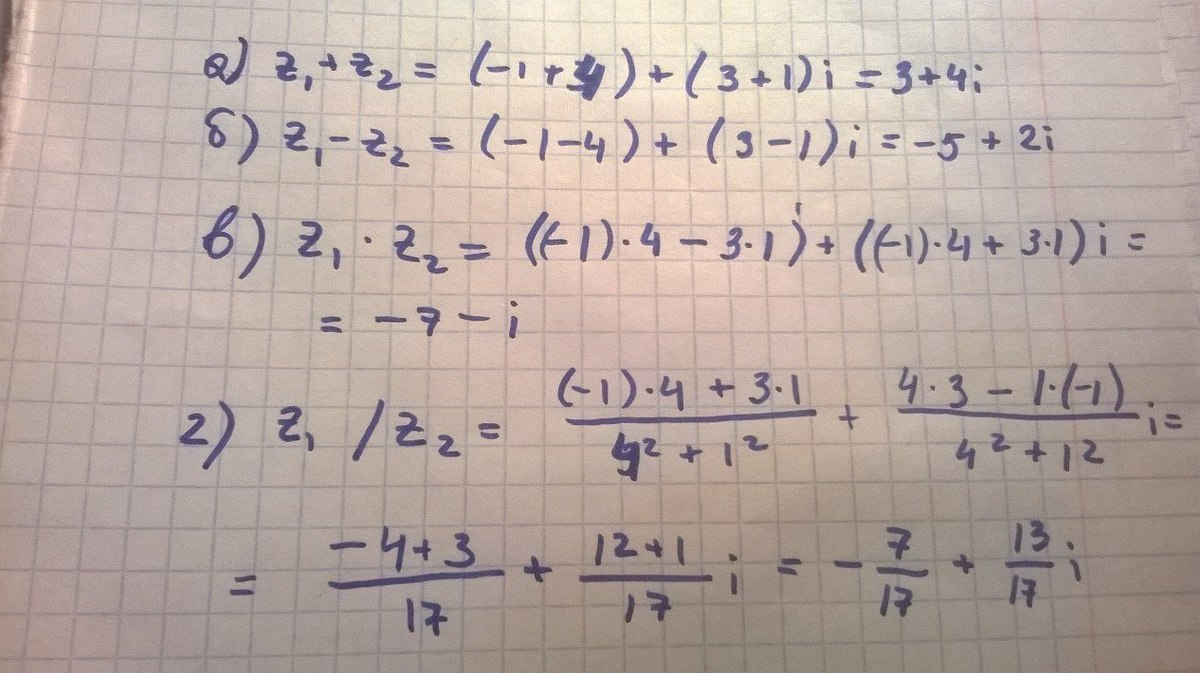 а) z₁ + z₂ = (-1 + 4) + (3 + 1) i = 3 + 4i
б) z₁ - z₂ = (-1 - 4) + (3 - 1) i = -5 + 2i
в) z₁ · z₂ = ((-1)·4 - 3·1) + ((-1)·4 + 3·1) i =
= -7 - i
г) z₁ / z₂ = ((-1)·4 + 3·1)/(4² + 1²) + (4·3 - 1·(-1))/(4² + 1²) i =
= (-4 + 3)/17 + (12 + 1)/17 i = - 7/17 + 13/17 i